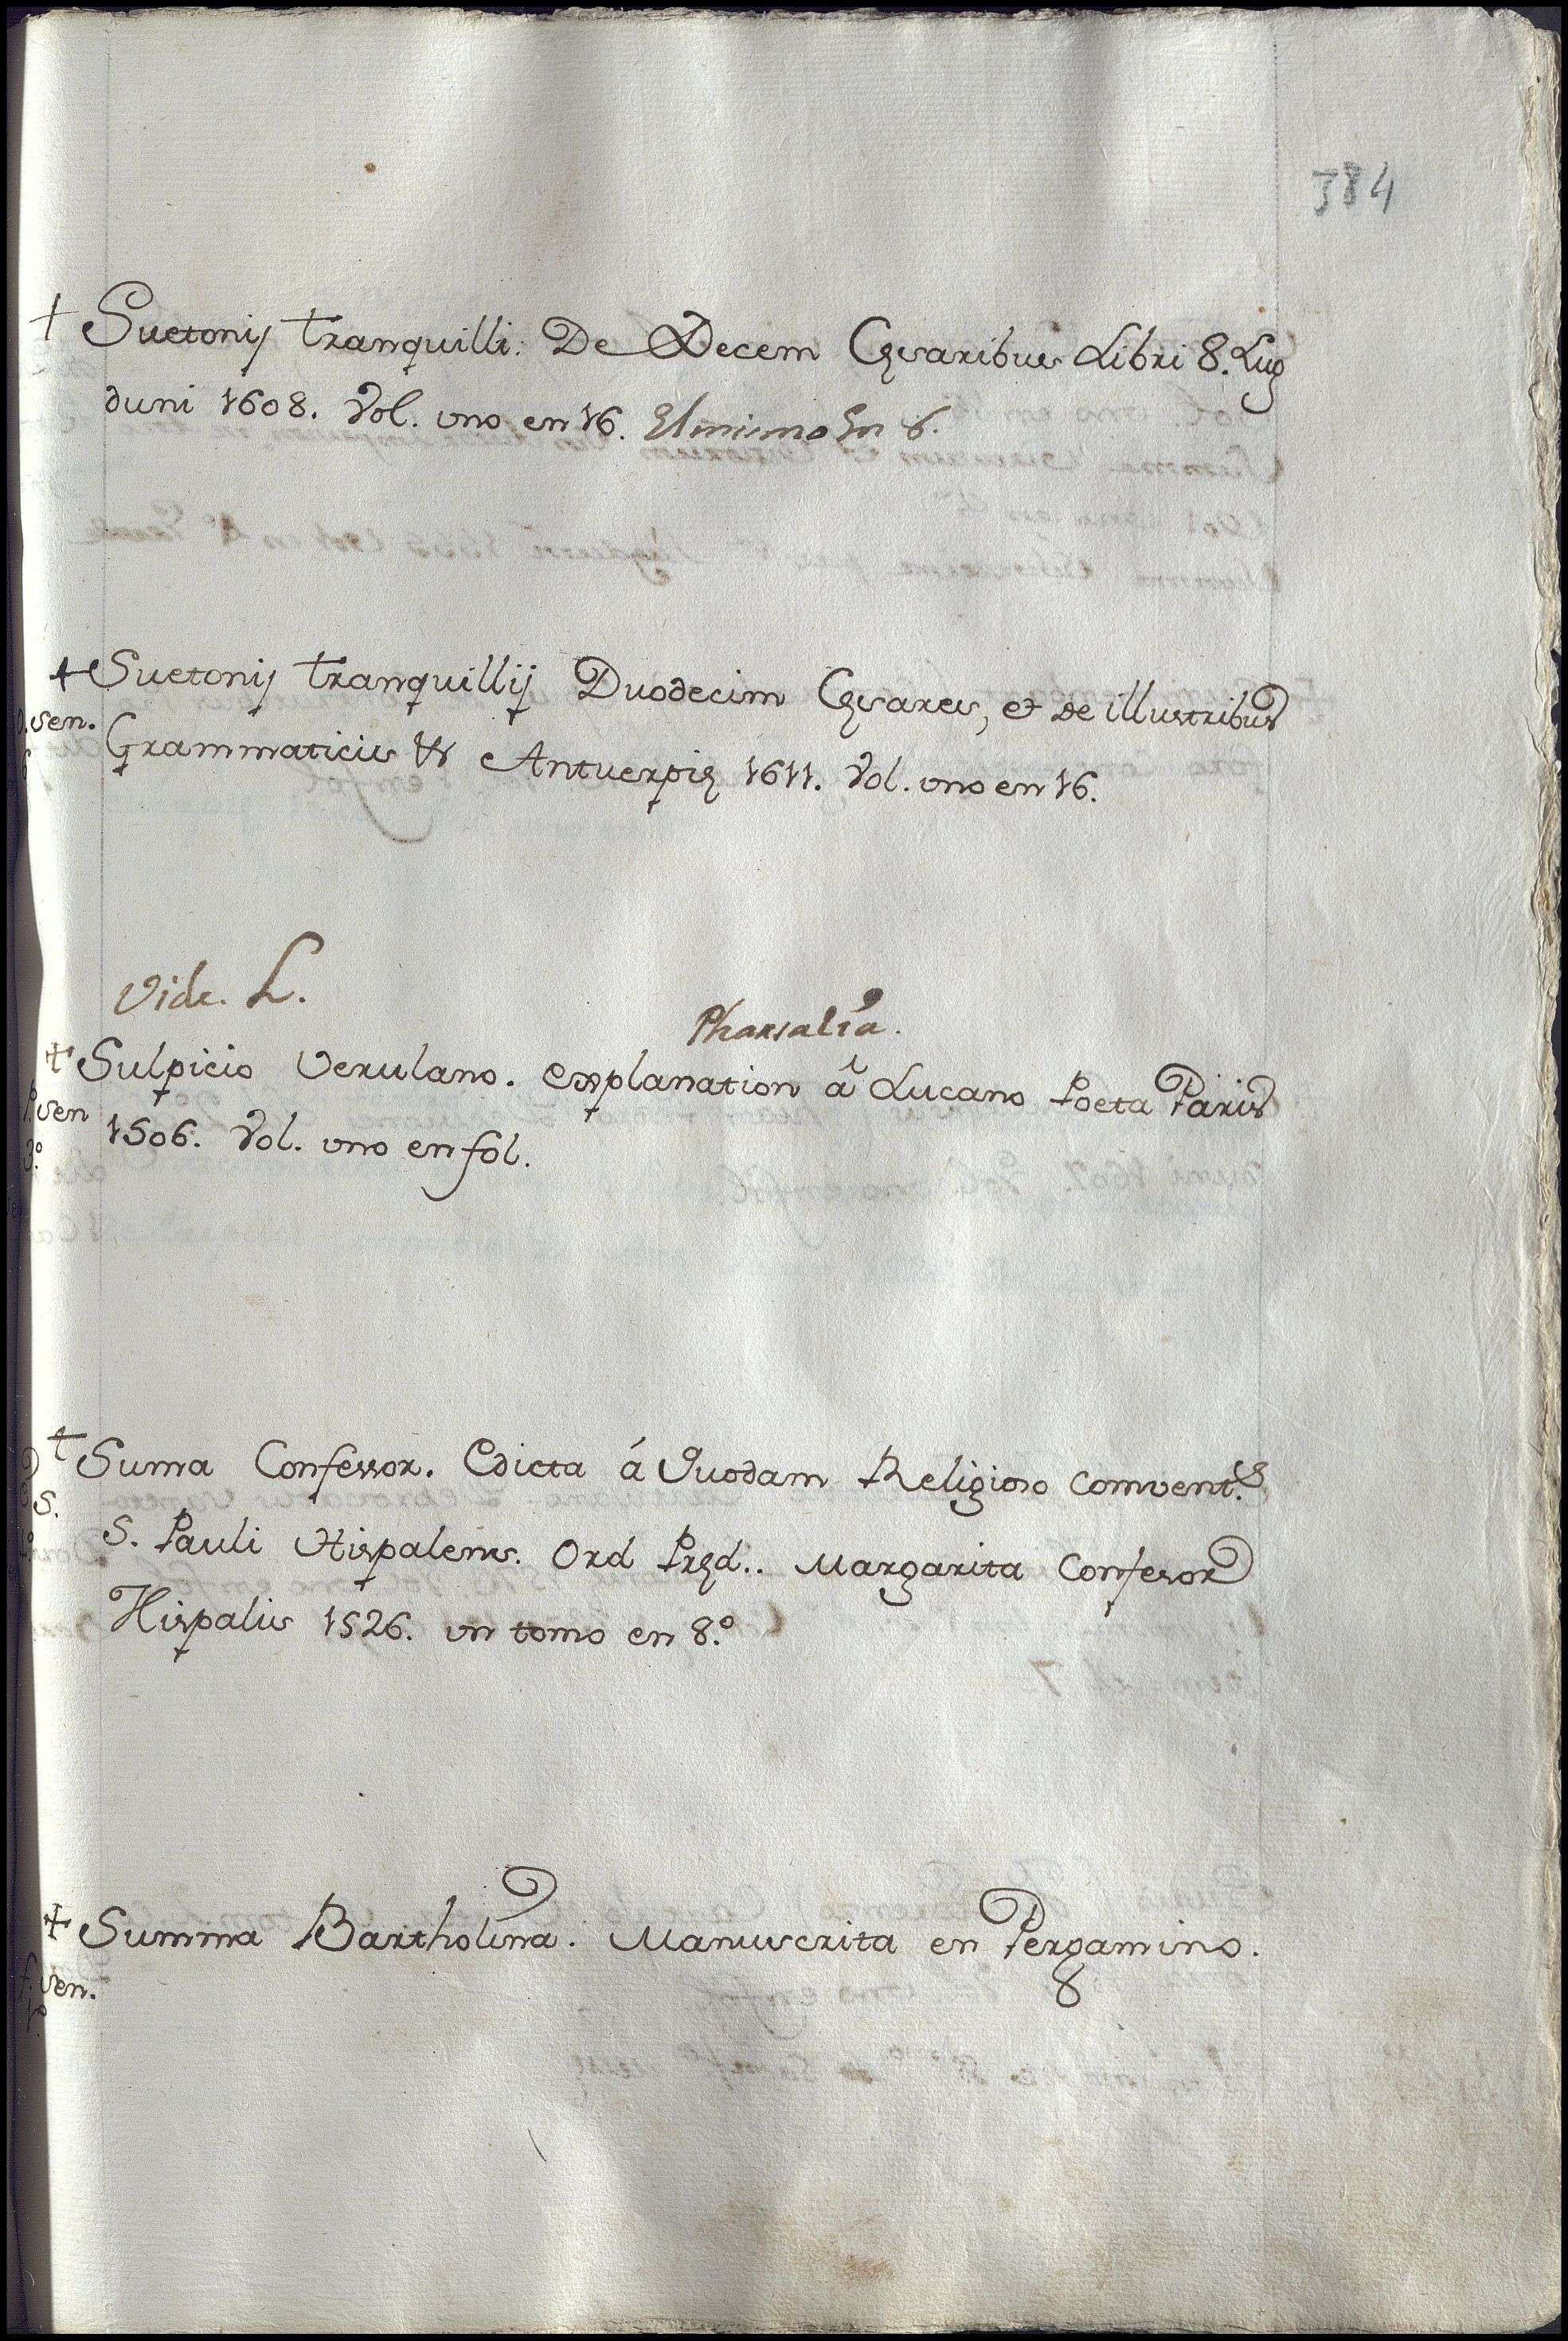 384
† Suetonij Tranquilli. De Decem Cęsaribus Libri 8. Lug
duni 1608. Vol. uno en 16. El mismo En 6.
† Suetonij Tranquillij Duodecim Cęsares, et de illustribus
sen. Grammaticis & Antuerpię 1611. Vol. uno en 16.
Vide. L.
Pharsalia.
† Sulpicio Verulano. Explanation â Lucano Poeta Paris
sen 1506. Vol. uno en fol.
† Suma Confessor. Edicta á Quodam Religioso Convent.s
S. S. Pauli Hispalens. Ord Pręd.. Margarita Confesor
Hispalis 1526. un tomo en 8.o
† Summa Bartholina. Manuscrita en Pergamino.
sen.